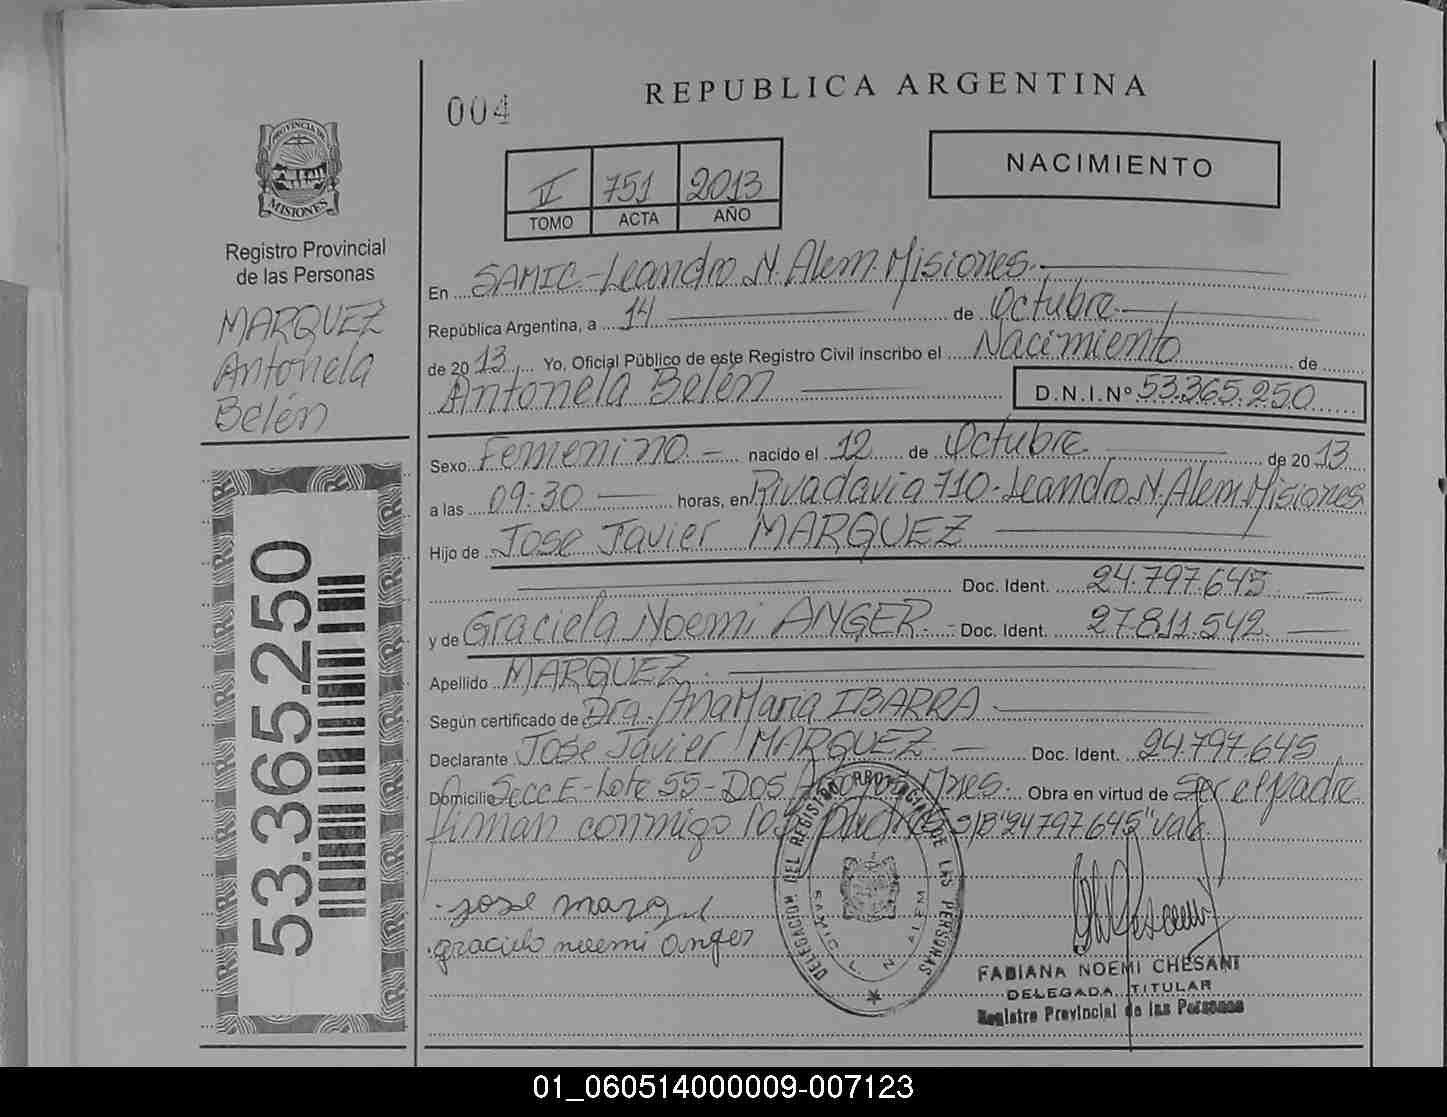 004
REPUBLICA ARGENTINA
NACIMIENTO
II 751 2013
TOMO ACTA AÑO
PROVINCIA DE
MISIONES
Registro Provincial
de las Personas
MARQUEZ
Antonela
Belén
53.365.250
En SAMIC-Leandro N. Alem. Misiones.
República Argentina, a 14 de Octubre
de 2013 Yo, Oficial Público de este Registro Civil inscribo el Nacimiento de
Antonela Belén D.N.I.Nº 53.365.250
Sexo Femenino - nacido el 12 de Octubre de 2013
a las 09:30 horas, en Rivadavia 710-Leandro N. Alem. Misiones
Hijo de Jose Javier MARQUEZ
Doc. Ident. 24.797.645
y de Graciela Noemi ANGER - Doc. Ident. 27.811.542
Apellido MARQUEZ
Según certificado de Dra. Ana Maria IBARRA
Declarante Jose Javier MARQUEZ - Doc. Ident. 24.797.645
Domicilio Secc E-Lote 55-DOS Arroyos. Mnes. Obra en virtud de Ser el padre
Firman conmigo los padres S/B "24797645" vale
jose marq
graciela noemi anger
DELEGACION DEL REGISTRO PROVINCIAL DE LAS PERSONAS
SAMIC L. N. ALEM
FABIANA NOEMI CHESANI
DELEGADA TITULAR
Registro Provincial de las Personas
01_060514000009-007123